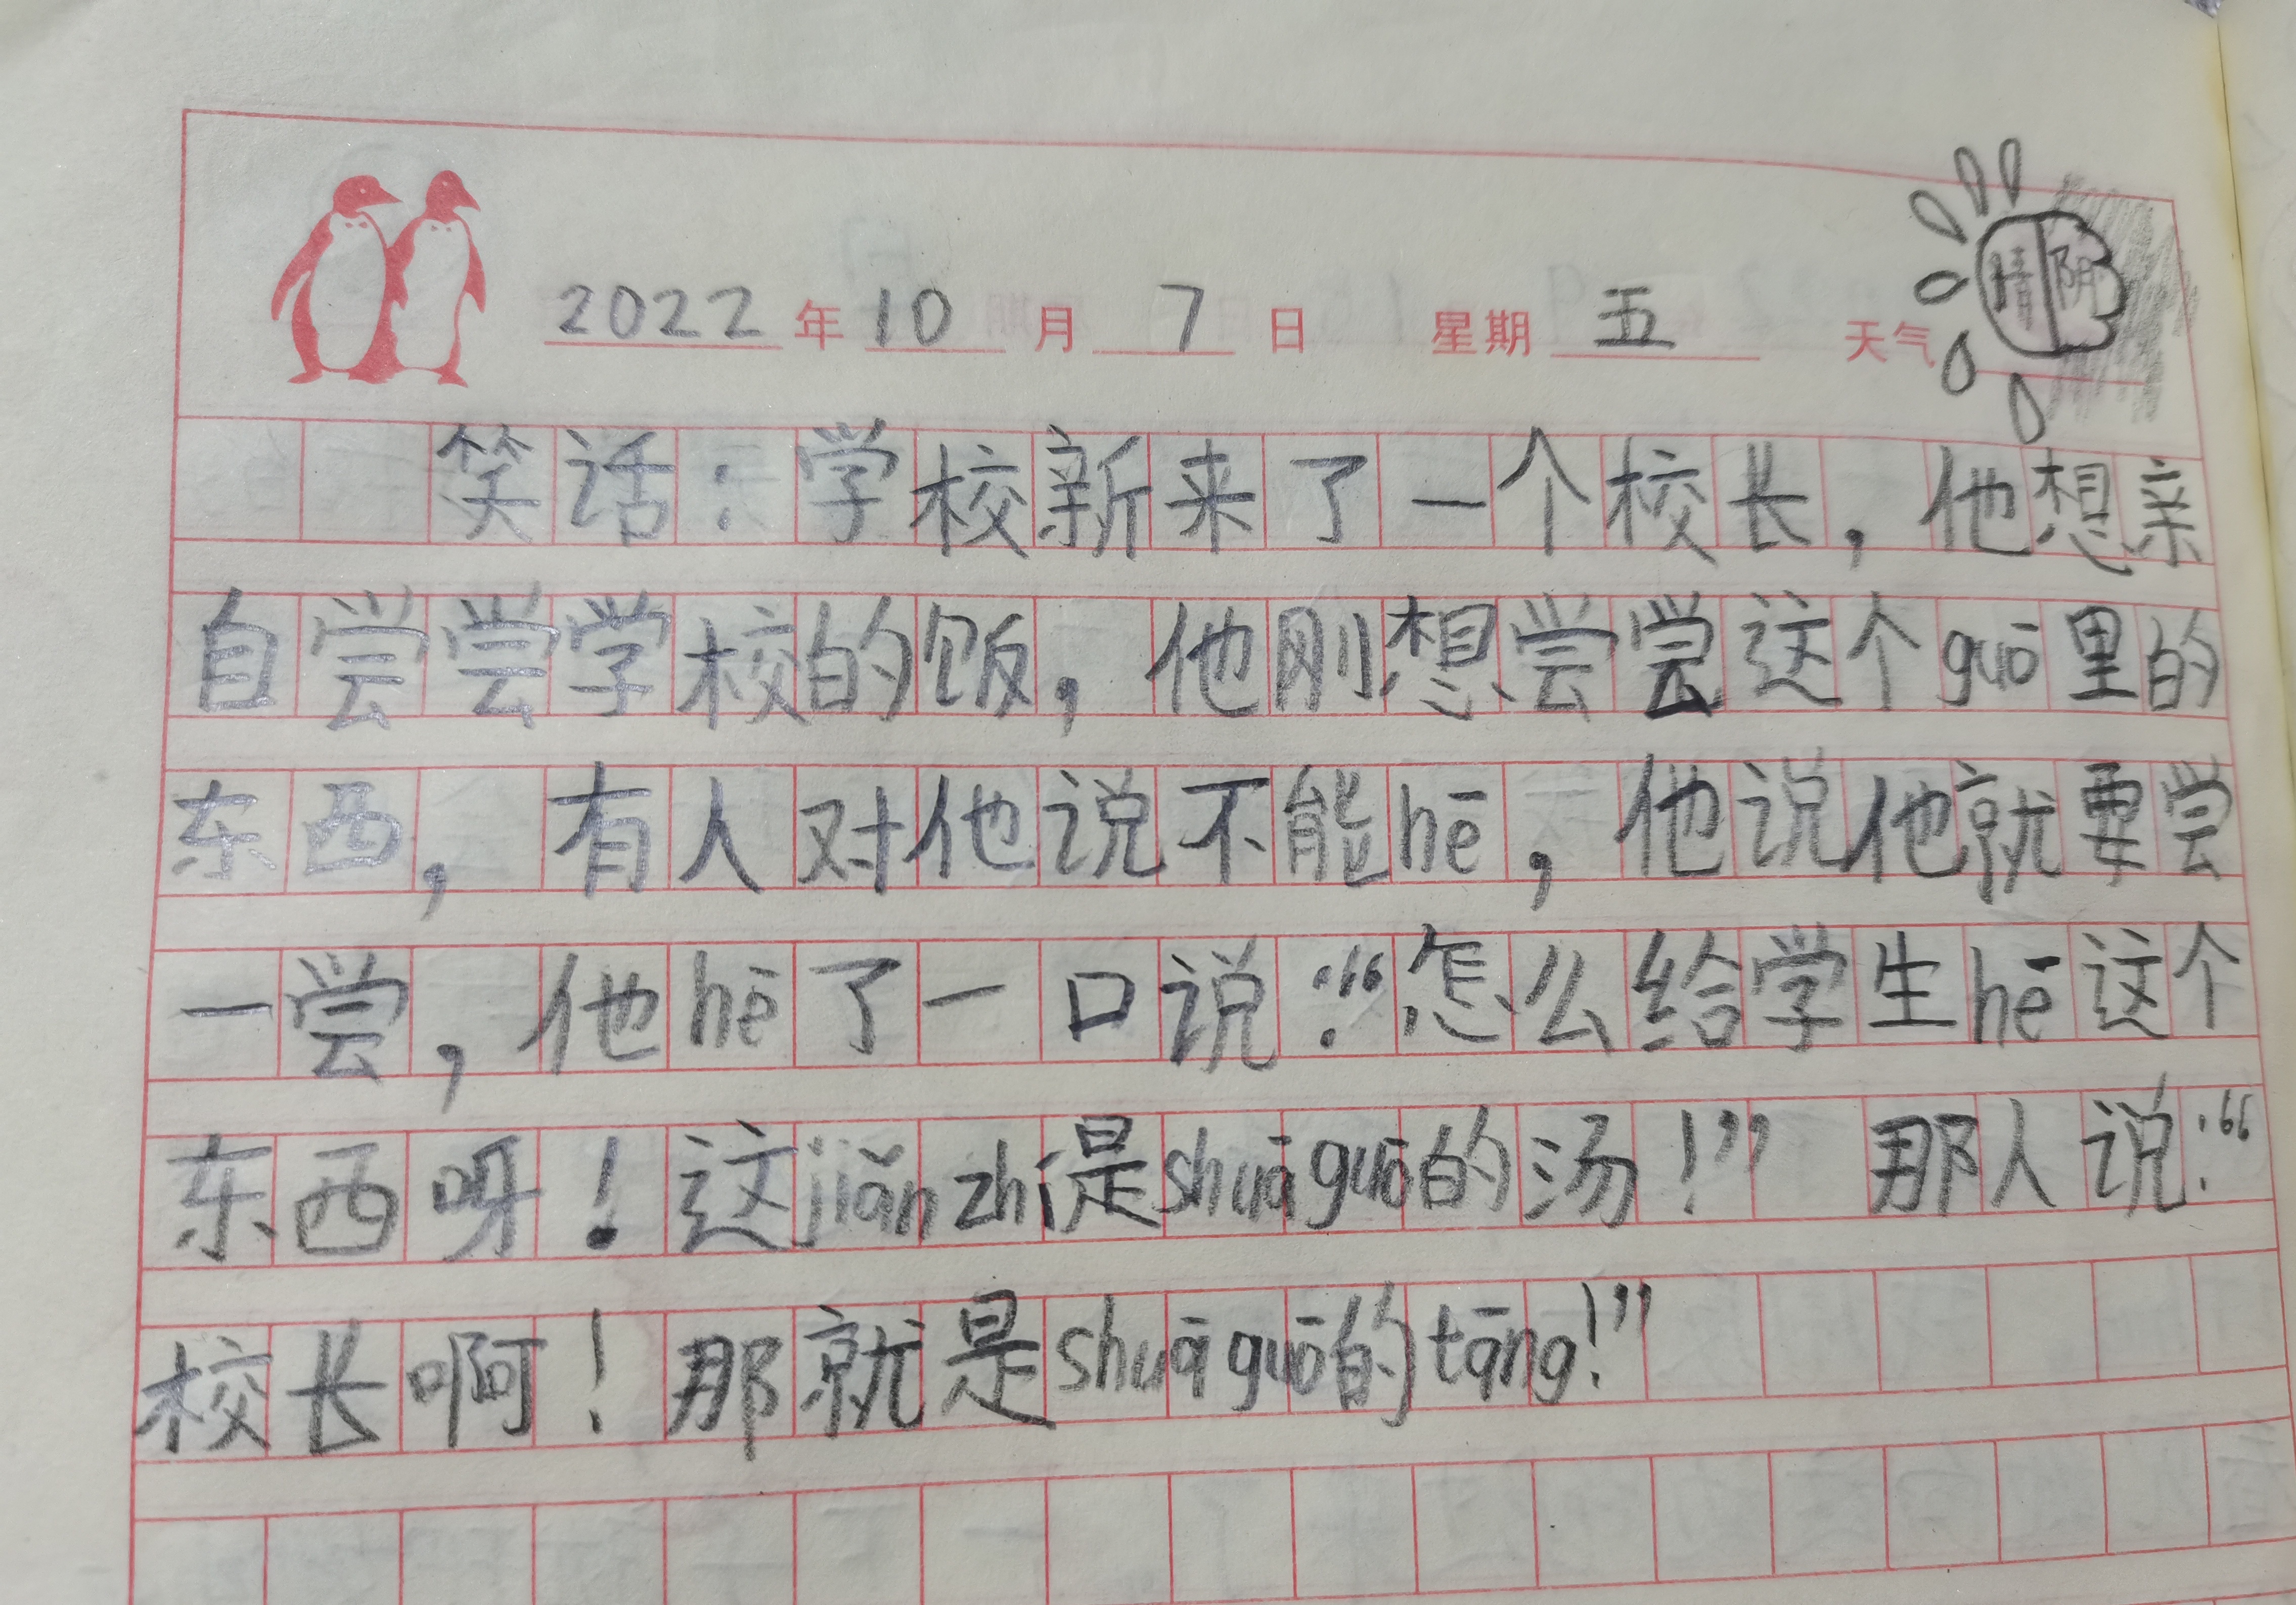 2022年10月7日 星期五 天气 晴 阴
笑话：学校新来了一个校长，他想亲
自尝尝学校的饭，他刚想尝尝这个guō里的
东西，有人对他说不能hē，他说他就要尝
一尝，他hē了一口说：“怎么给学生hē这个
东西呀！这jiǎn zhí是shuā guō的汤！”那人说：“
校长啊！那就是shuā guō的tāng!”